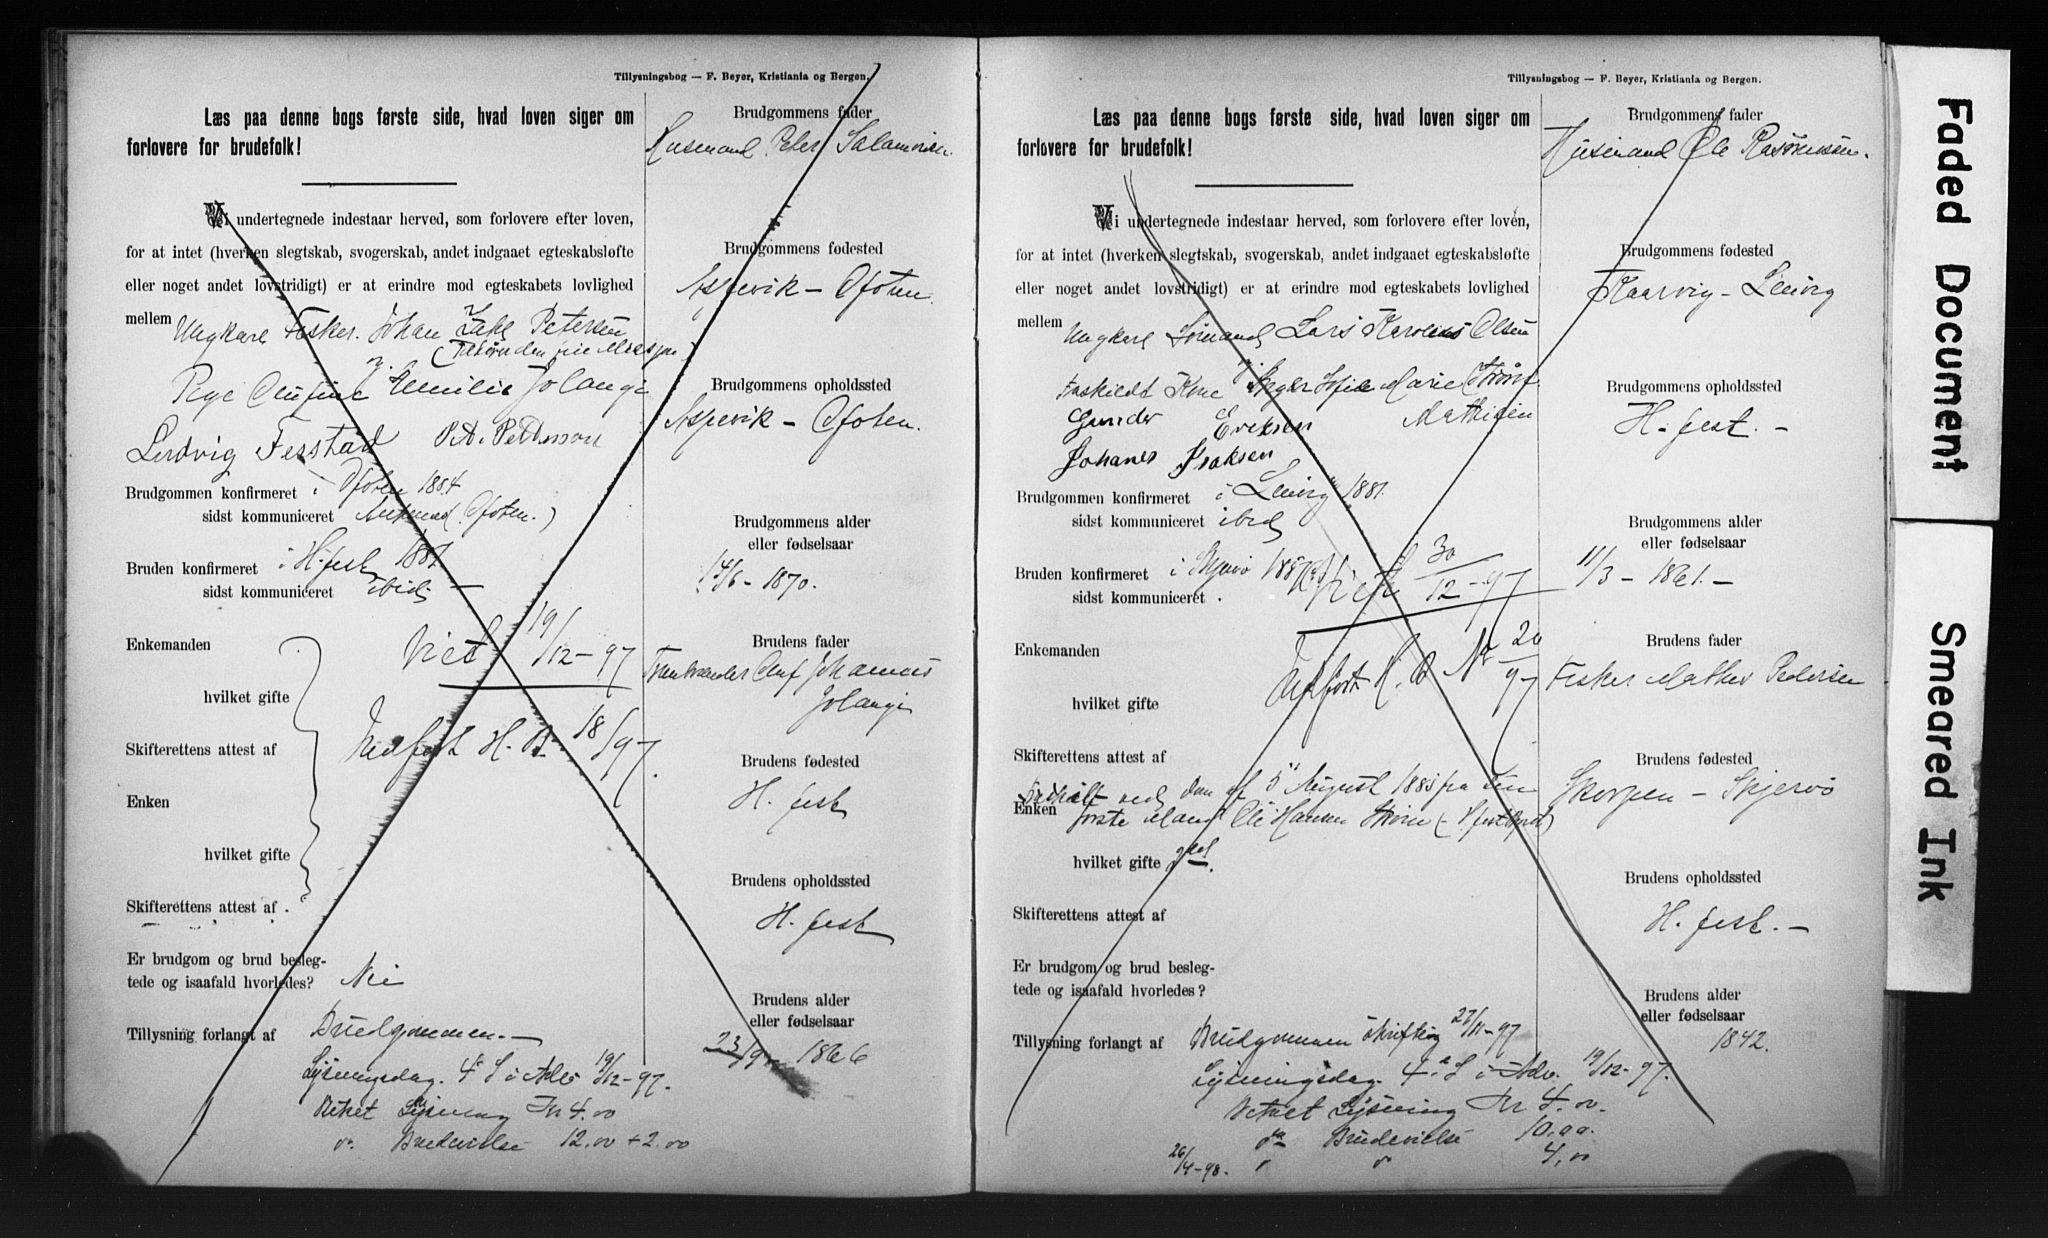 Tillysningsbog — F. Beyer, Kristiania og Bergen.
Læs paa denne bogs første side, hvad loven siger om
forlovere for brudefolk!
Vi undertegnede indestaar herved, som forlovere efter loven,
for at intet (hverken slegtskab, svogerskab, andet indgaaet egteskabsløfte
eller noget andet lovstridigt) er at erindre mod egteskabets lovlighed
mellem Ungkarl Fisker Johan Petersen
Pige Olufine Emilie Jolangi
Ludvig Fesstad
Brudgommen konfirmeret i Ofoten 1884
sidst kommuniceret Ankenæs (Ofoten.)
Bruden konfirmeret i H.fest 1881
sidst kommuniceret ibid
Enkemanden
Viet 19/12-97
hvilket gifte
Indført H. B. 18/97.
Skifterettens attest af
Enken
hvilket gifte
Skifterettens attest af .
Er brudgom og brud besleg-
tede og isaafald hvorledes? Nei
Tillysning forlangt af Brudgommen.
Lysningsdag. 4. S. i Adv. 19/12-97.
Lysning Kr 4.00
do. Brudevielse 12.00 + 2.00
Brudgommens fader
Husmand Peter
Brudgommens fødested
Aspevik - Ofoten.
Brudgommens opholdssted
Aspevik - Ofoten.
Brudgommens alder
eller fødselsaar
14/6 - 1870.
Brudens fader
Oluf Johannes
Jolangi
Brudens fødested
H. fest
Brudens opholdssted
H. fest
Brudens alder
eller fødselsaar
23/9 1866
Tillysningsbog — F. Beyer, Kristiania og Bergen.
Læs paa denne bogs første side, hvad loven siger om
forlovere for brudefolk!
Vi undertegnede indestaar herved, som forlovere efter loven,
for at intet (hverken slegtskab, svogerskab, andet indgaaet egteskabsløfte
eller noget andet lovstridigt) er at erindre mod egteskabets lovlighed
mellem
Ungkarl Sømand Lars Karolius Olsen
Fraskildt Kone Marie Strøm
Gunder Eriksen Mathisen
Johanes Isaksen
Brudgommen konfirmeret i Lenvig 1881.
sidst kommuniceret ibid
Bruden konfirmeret i Skjervø
sidst kommuniceret . Viet 30/12-97
Enkemanden
Indført H. B. No 20/97
hvilket gifte
Skifterettens attest af
ved Dom af 5 August 1885 fra sin
Enken første Mand Ole Hansen Strøm
hvilket gifte 2det.
Skifterettens attest af
Er brudgom og brud besleg-
tede og isaafald hvorledes?
Tillysning forlangt af Brudgommen skriftlig 27/11-97
Lysningsdag 4. S. i Adv. 19/12-97.
Betalt Lysning Kr 4.00.
do Brudevielse 10.00.
26/4-98. 4,00
Brudgommens fader
Husmand Ole Rasmussen.
Brudgommens fødested
Kaarvig - Lenvig
Brudgommens opholdssted
H. fest. -
Brudgommens alder
eller fødselsaar
11/3 - 1861. -
Brudens fader
Fisker Mathis Pedersen
Brudens fødested
Skorpen - Skjervø
Brudens opholdssted
H. fest. -
Brudens alder
eller fødselsaar
1842.
Faded Document
Smeared Ink